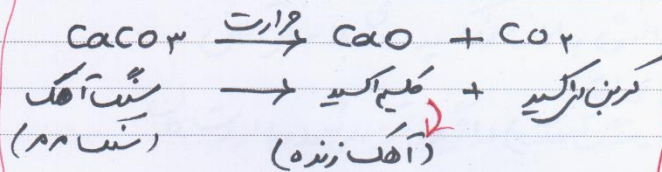 CaCO۳ حرارت → CaO + CO۲
سنگ آهک → کلسیم اکسید + کربن دی اکسید
(سنگ مرمر) (آهک زنده)